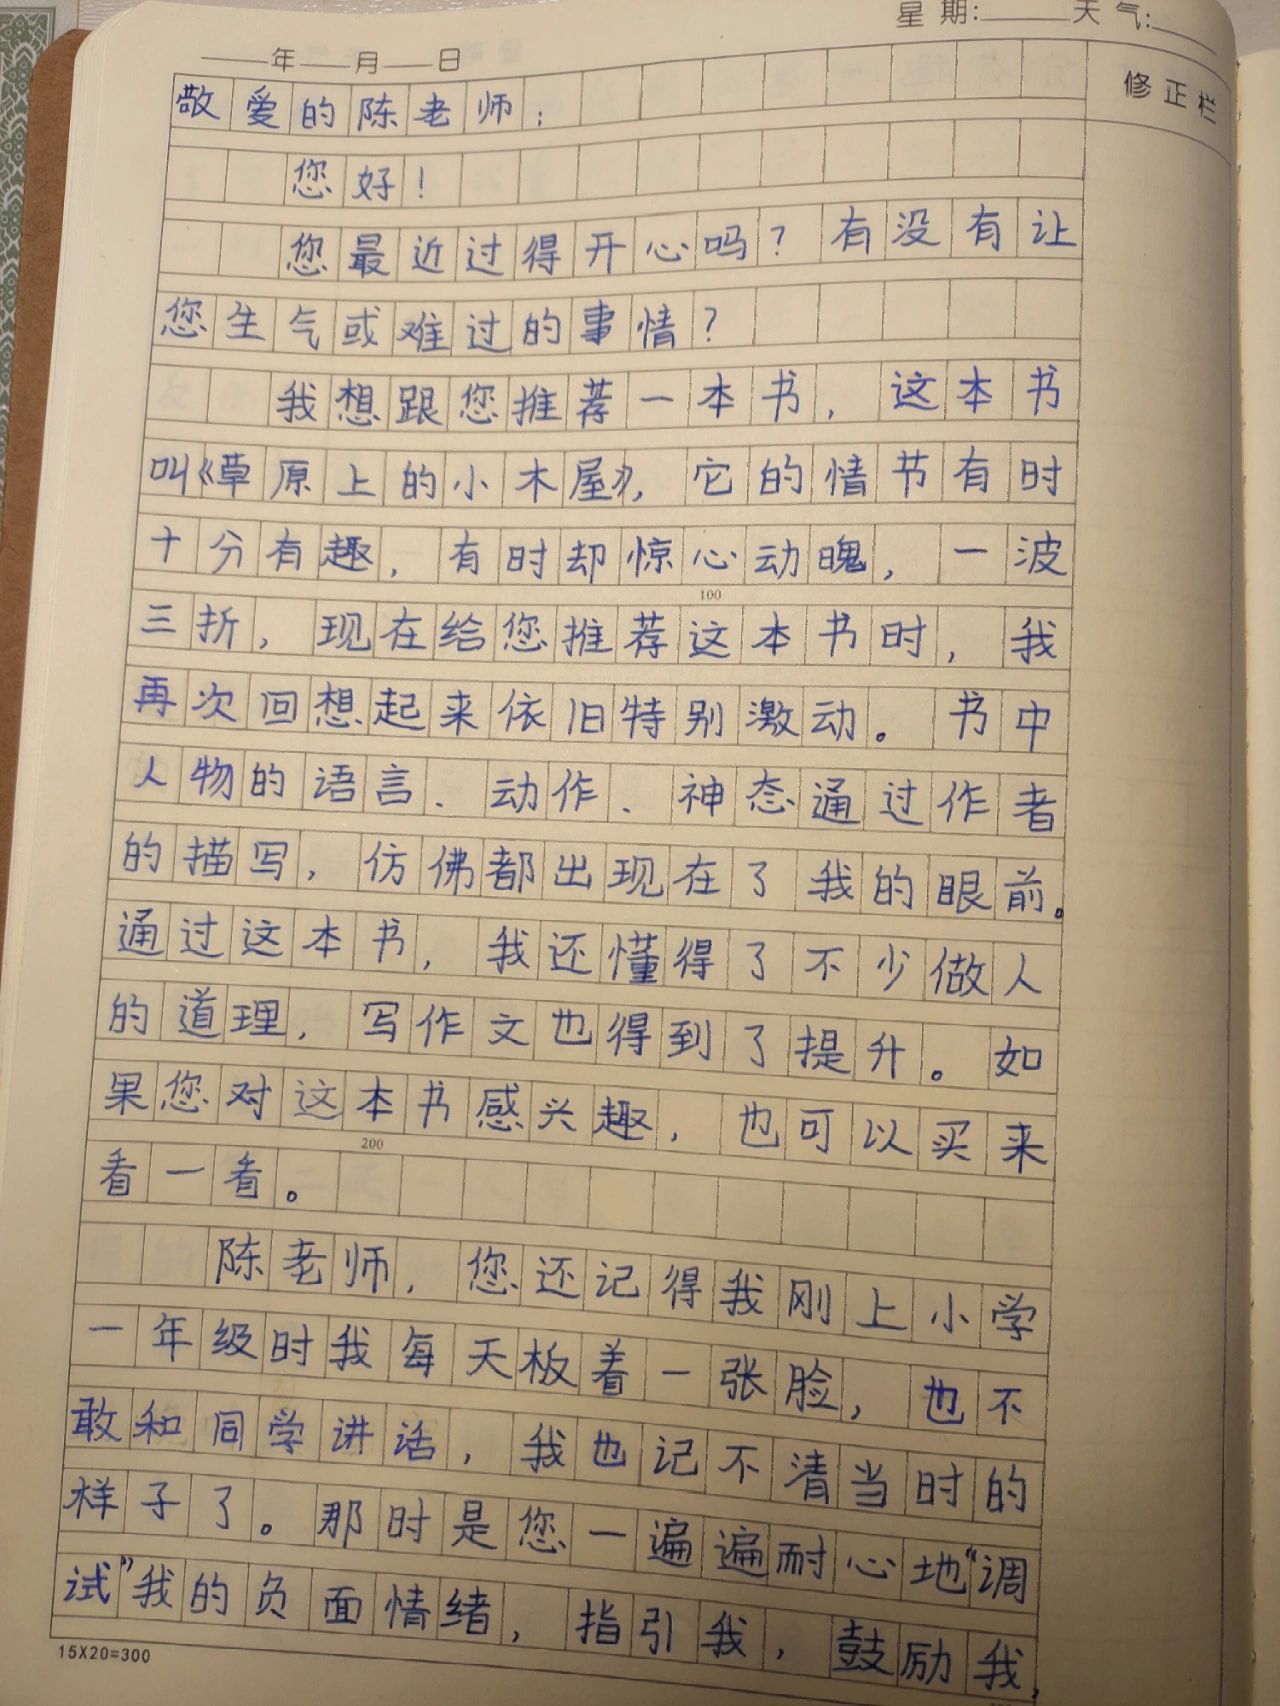 星期:____天气:____
____年____月____日
修正栏
敬爱的陈老师：
您好！
您最近过得开心吗？有没有让
您生气或难过的事情？
我想跟您推荐一本书，这本书
叫《草原上的小木屋》，它的情节有时
十分有趣，有时却惊心动魄，一波
100
三折，现在给您推荐这本书时，我
再次回想起来依旧特别激动。书中
人物的语言、动作、神态通过作者
的描写，仿佛都出现在了我的眼前。
通过这本书，我还懂得了不少做人
的道理，写作文也得到了提升。如
果您对这本书感兴趣，也可以买来
200
看一看。
陈老师，您还记得我刚上小学
一年级时我每天板着一张脸，也不
敢和同学讲话，我也记不清当时的
样子了。那时是您一遍遍耐心地“调
试”我的负面情绪，指引我，鼓励我，
15X20=300